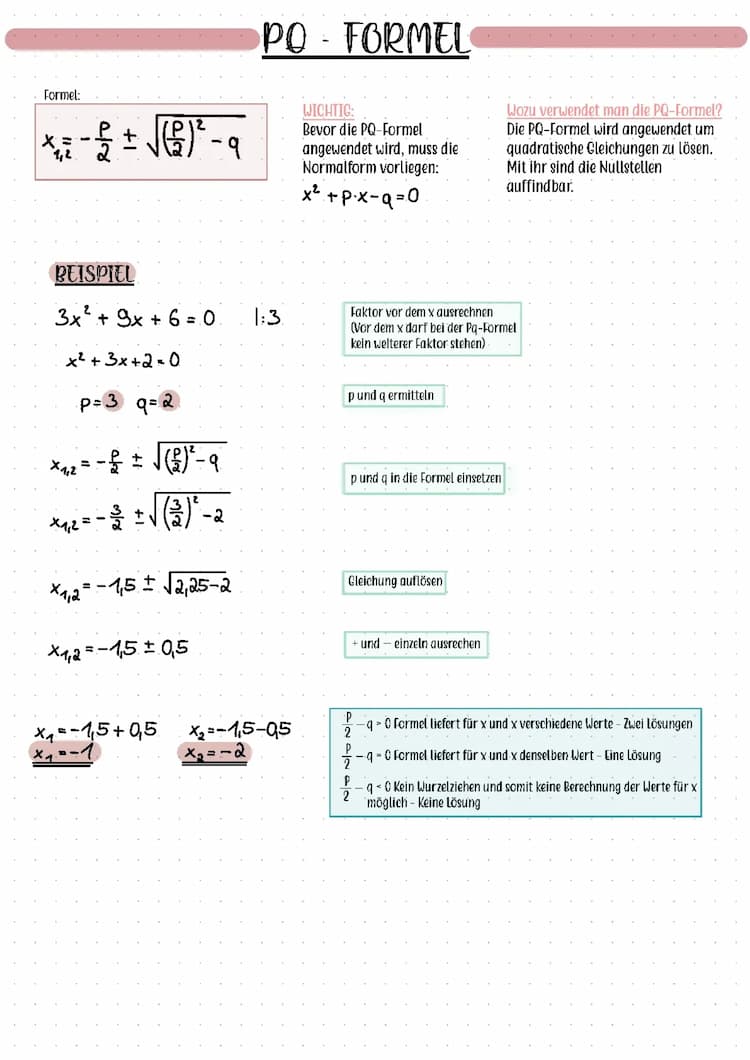 PQ - FORMEL
Formel:
x₁,₂ = -p/2 ± √((p/2)² - q)
WICHTIG:
Bevor die PQ-Formel
angewendet wird, muss die
Normalform vorliegen:
x² + p·x-q=0
Wozu verwendet man die PQ-Formel?
Die PQ-Formel wird angewendet um
quadratische Gleichungen zu lösen.
Mit ihr sind die Nullstellen
auffindbar.
BEISPIEL
3x² + 9x + 6 = 0 |:3
Faktor vor dem x ausrechnen
(Vor dem x darf bei der Pq-Formel
kein weiterer Faktor stehen)
x² + 3x+2=0
p=3 q=2
p und q ermitteln
x₁,₂ = -p/2 ± √((p/2)²-q)
p und q in die Formel einsetzen
x₁,₂ = -3/2 ± √((3/2)²-2)
x₁,₂ = -1,5 ± √2,25-2
Gleichung auflösen
x₁,₂ = -1,5 ± 0,5
+ und - einzeln ausrechen
x₁ = -1,5 + 0,5 x₂ = -1,5-0,5
x₁ = -1 x₂ = -2
p/2 - q > 0 Formel liefert für x und x verschiedene Werte - Zwei Lösungen
p/2 - q = 0 Formel liefert für x und x denselben Wert - Eine Lösung
p/2 - q < 0 Kein Wurzelziehen und somit keine Berechnung der Werte für x
möglich - Keine Lösung